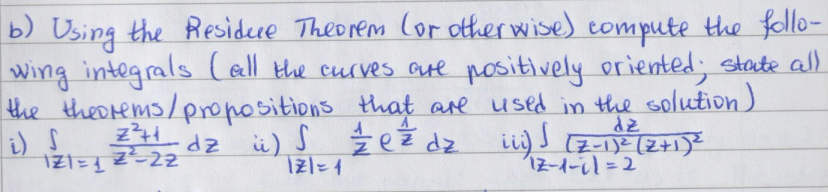 b) Using the Residue Theorem (or otherwise) compute the follo-
wing integrals (all the curves are positively oriented; state all
the theorems/propositions that are used in the solution)
i) ∫_{|z|=1} (z²+1)/(z²-2z) dz ii) ∫_{|z|=1} (1/z) e^{1/z} dz iii) ∫_{|z-1-i|=2} dz/((z-1)²(z+1)²)